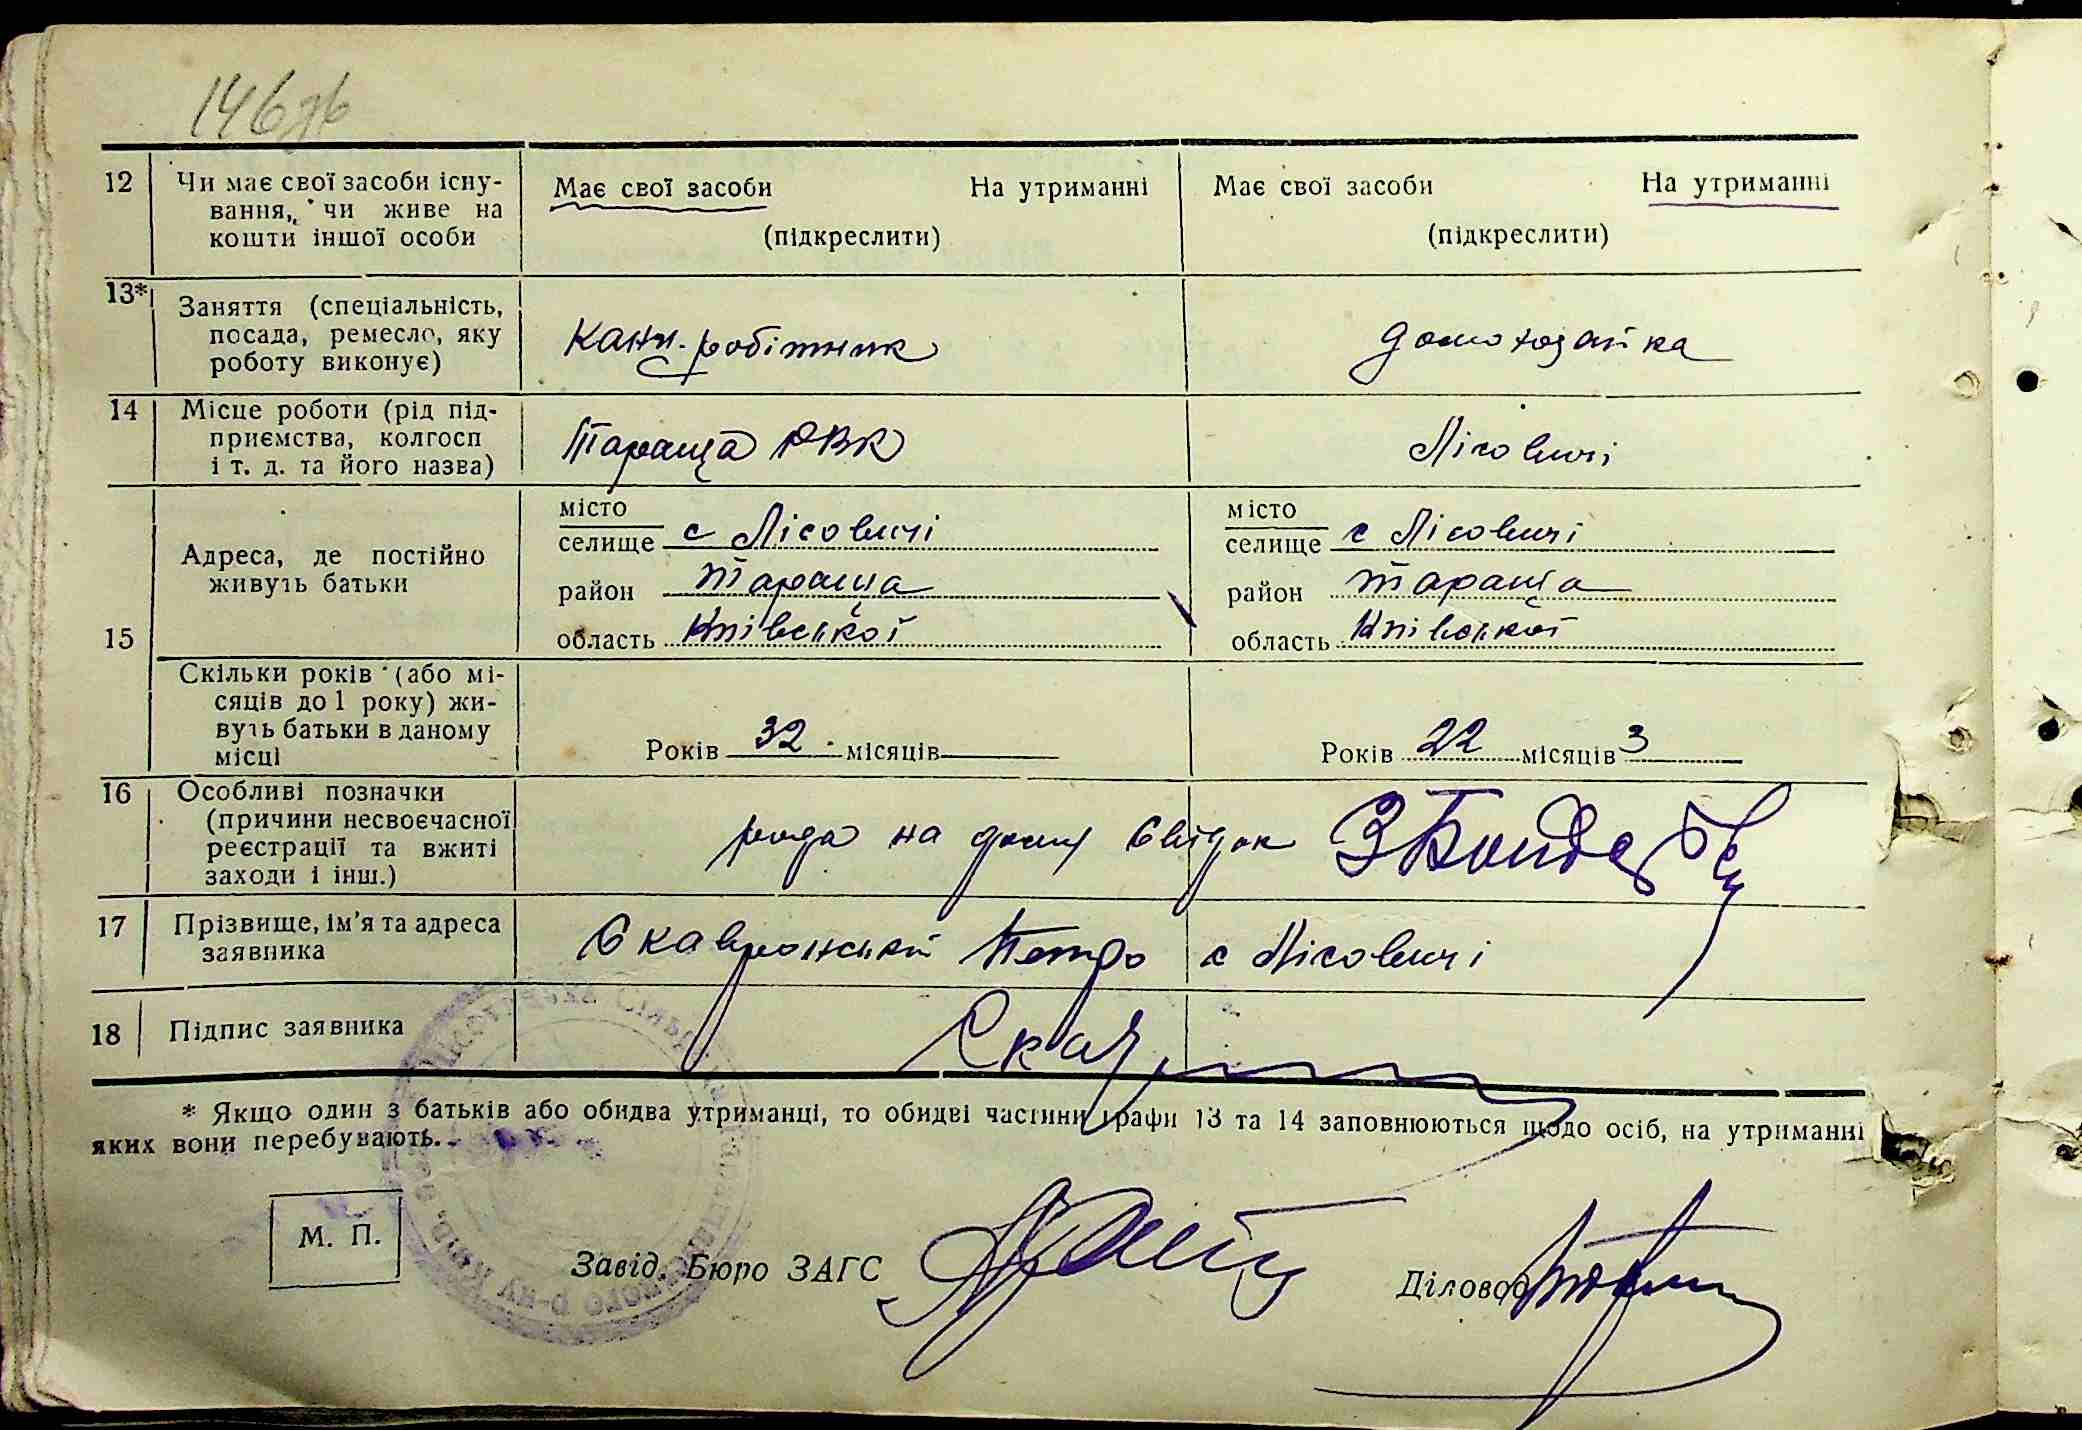 146зв
12 Чи має свої засоби існу- Має свої засоби На утриманні Має свої засоби На утриманні
вання, чи живе на
кошти іншої особи (підкреслити) (підкреслити)
13* Заняття (спеціальність,
посада, ремесло, яку канц. робітник домохозайка
роботу виконує)
14 Місце роботи (рід під-
приємства, колгосп Тараща РВК Лісовичі
і т. д. та його назва)
15 Адреса, де постійно живуть батьки
місто селище с Лісовичі місто селище с Лісовичі
район Тараща район Тараща
область Київської область Київської
Скільки років (або мі-
сяців до 1 року) жи-
вуть батьки в даному
місці Років 32 місяців Років 22 місяців 3
16 Особливі позначки
(причини несвоєчасної
реєстрації та вжиті
заходи і інш.) рода на дому свідок
17 Прізвище, ім'я та адреса
заявника Скавронський Петро с Лісовичі
18 Підпис заявника
* Якщо один з батьків або обидва утриманці, то обидві частини графи 13 та 14 заповнюються щодо осіб, на утриманні
яких вони перебувають.
М. П. Завід. Бюро ЗАГС Діловод